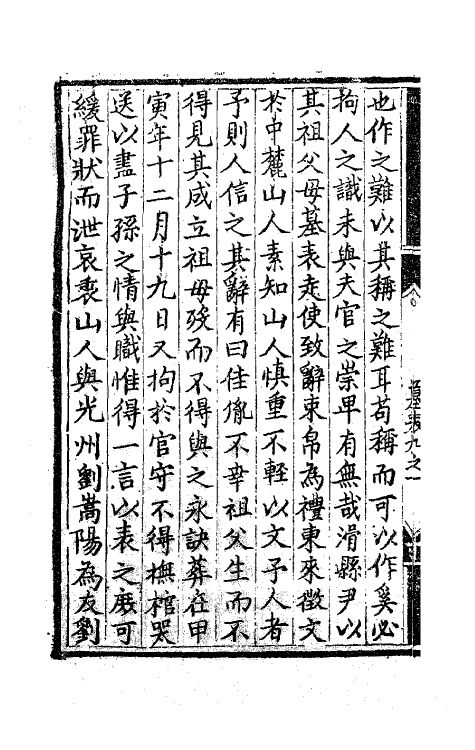 也作之難以其稱之難耳苟稱而可以作奚必
拘人之識未與夫官之崇卑有無哉滑縣尹以
其祖父母墓表走使致辭束帛為禮東來徵文
於中麓山人素知山人慎重不輕以文予人者
予則人信之其辭有曰佳胤不幸祖父生而不
得見其成立祖母歿而不得與之永訣葬在甲
寅年十二月十九日又拘於官守不得撫棺哭
送以盡子孫之情與職惟得一言以表之庶可
緩罪狀而泄哀衷山人與光州劉嵩陽為友劉
墓表九之一